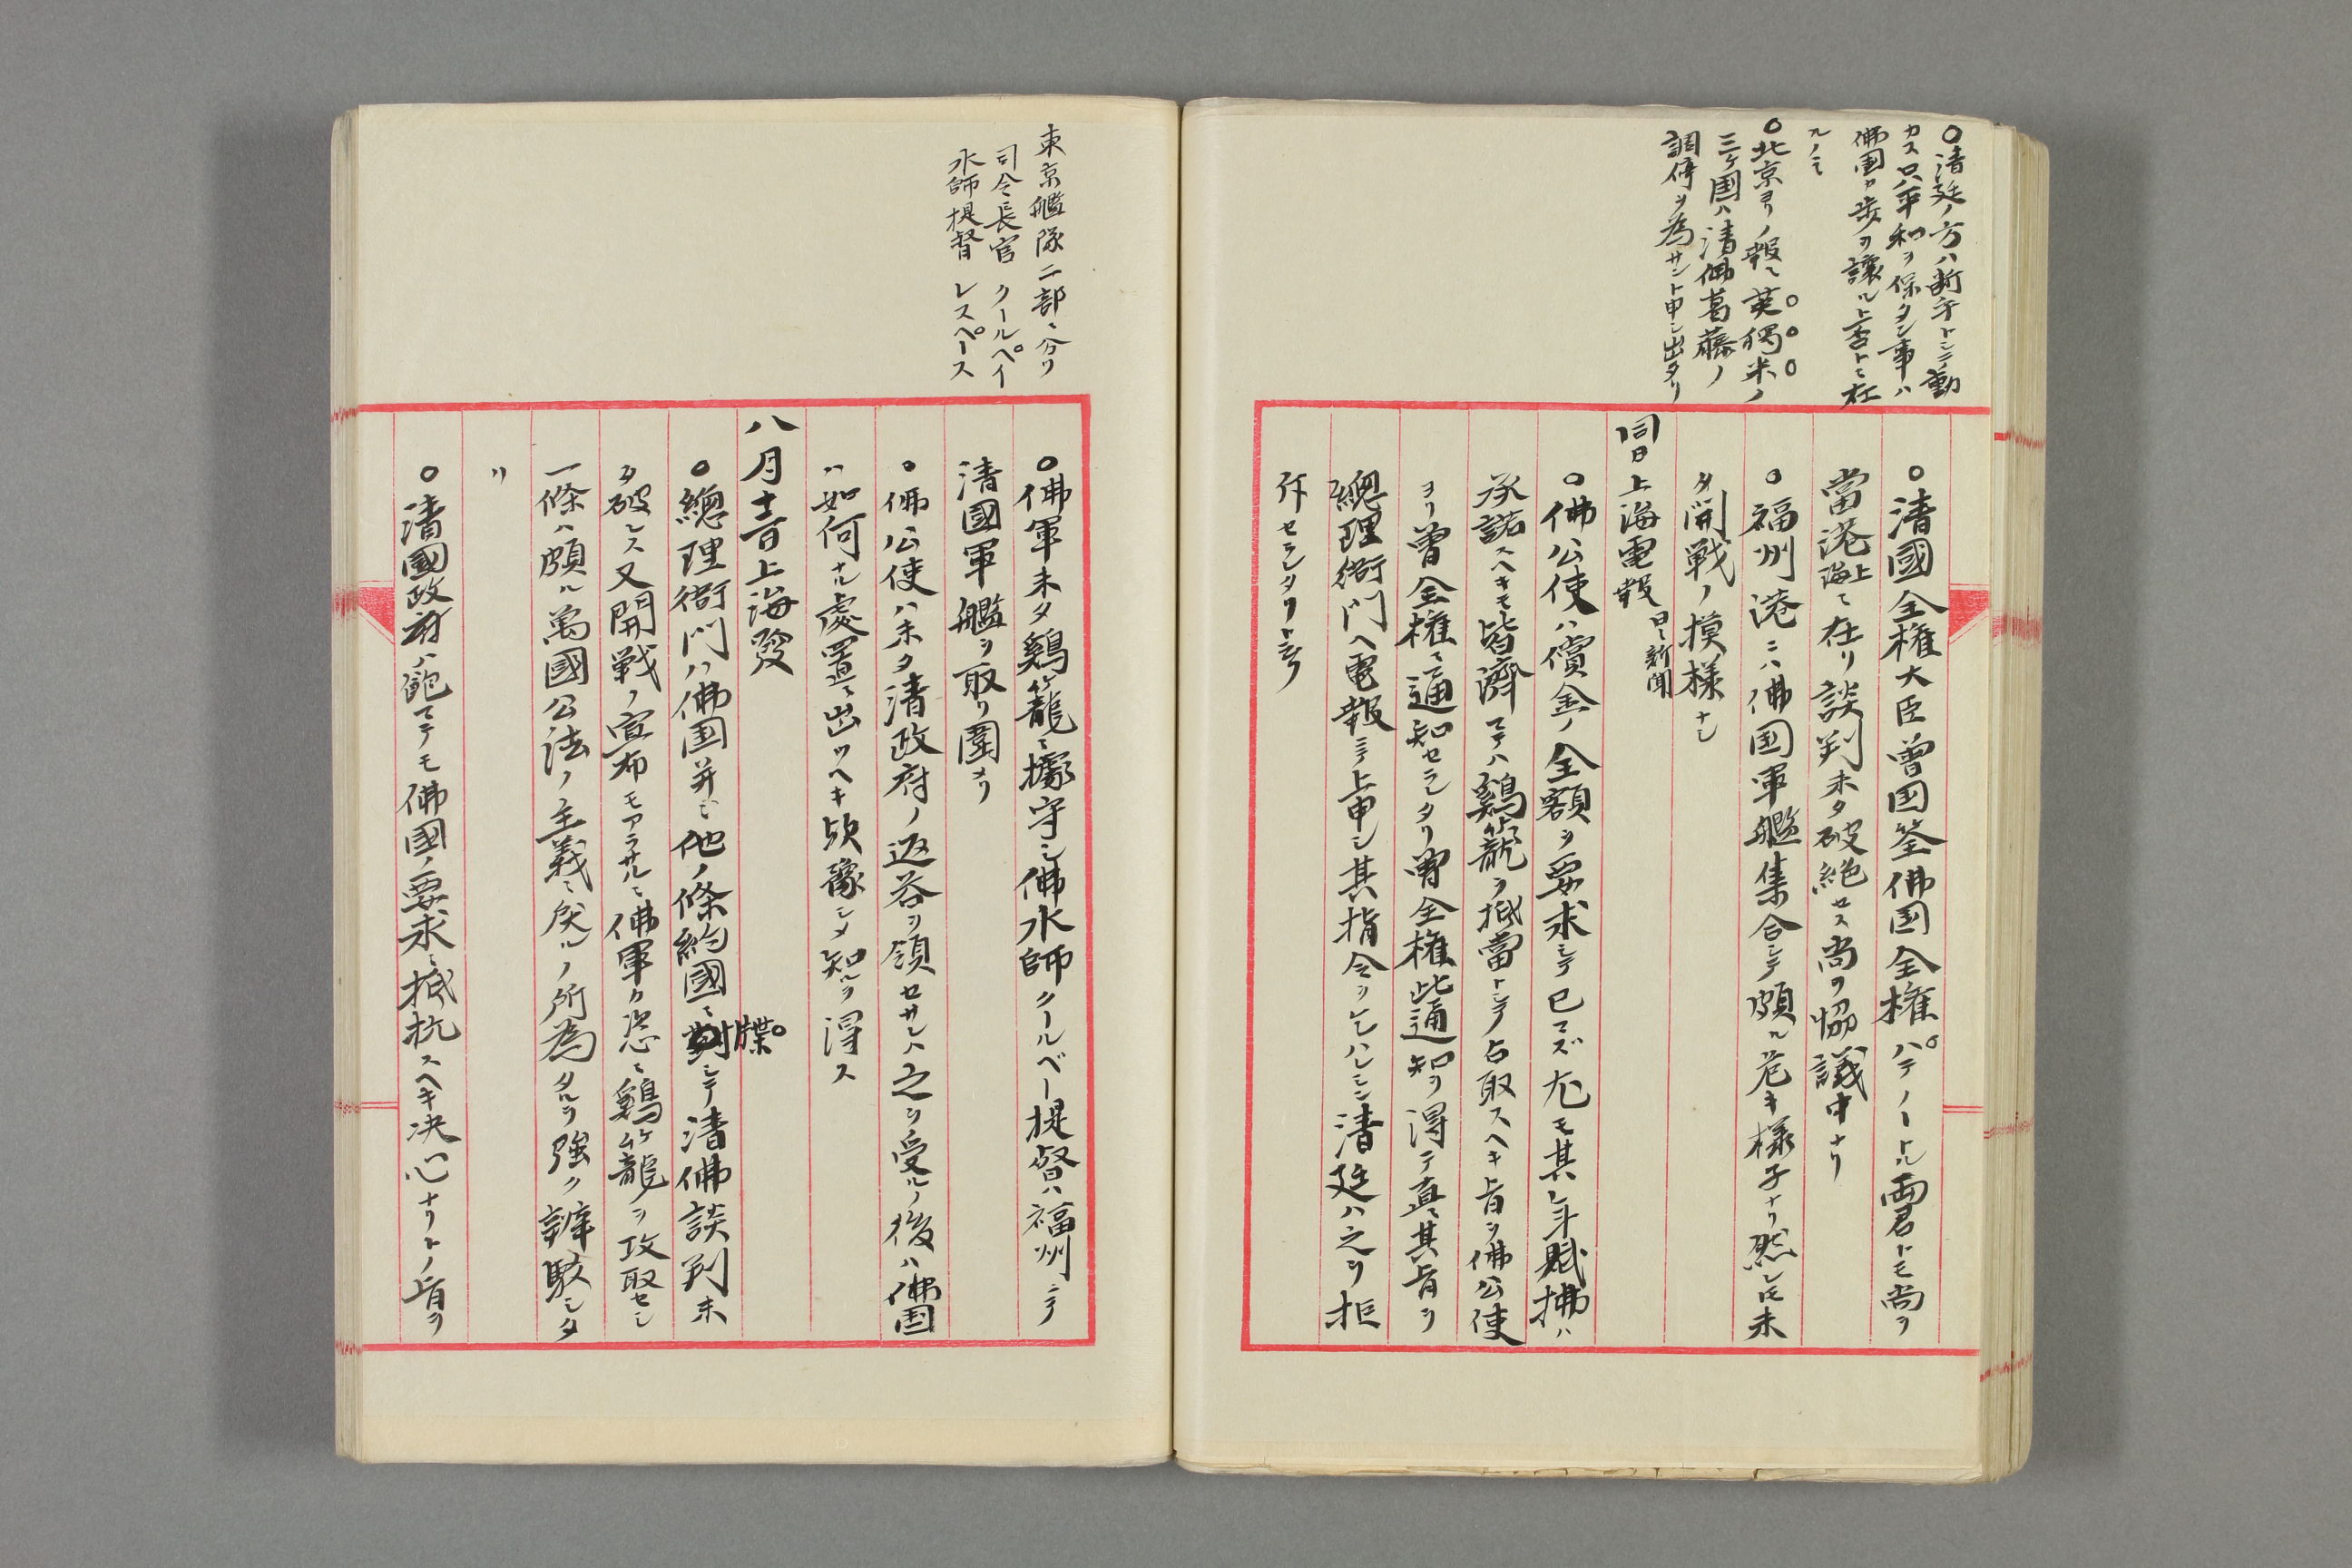 ○清廷ノ方ハ断乎トシテ動
カス只平和ヲ保タン事ハ
佛国カ歩ヲ譲ルト否トニ在
ルノミ
○北京ヨリノ報ニ英獨米ノ
三ケ国ハ清佛葛藤ノ
調停ヲ為サント申シ出タリ
○清國全権大臣曽国荃佛国全権パテノートル両君トモ尚ヲ
當港上海ニ在リ談判未タ破絶セス尚ヲ協議中ナリ
○福州港ニハ佛国軍艦集合シテ頗ル危キ様子ナリ然レトモ未
タ開戦ノ摸様ナシ
同日上海電報 日々新聞
○佛公使ハ償金ノ全額ヲ要求シテ已マズ尤モ其年賦拂ハ
承諾スヘキモ皆濟マテハ鷄籠ヲ抵當トシテ占取スヘキ旨ヲ佛公使
ヨリ曽全権ニ通知セラレタリ曽全権此通知ヲ得テ直ニ其旨ヲ
總理衙門ヘ電報ニテ上申シ其指令ヲ乞ハレシニ清廷ハ之ヲ拒
斥セラレタリト云フ
東京艦隊二部ニ分リ
司令長官 クールペイ
水師提督 レスペース
○佛軍未タ鷄籠ニ據守シ佛水師クールベー提督ハ福州ニテ
清國軍艦ヲ取リ圍メリ
○佛公使ハ未タ清政府ノ返答ヲ領セサレトモ之ヲ受ルノ後ハ佛國
ハ如何ナル處置ニ出ツヘキ欤豫シメ知ルヲ得ス
八月十二日上海發
○總理衙門ハ佛国并ニ他ノ條約國ニ牒シテ清佛談判未
タ破レス又開戦ノ宣布モアラサルニ佛軍カ恣ニ鷄籠ヲ攻取セシ
一條ハ頗ル萬國公法ノ主義ニ戻ルノ所為タルヲ強ク辨駁シタ
リ
○清國政府ハ飽マテモ佛國ノ要求ニ抵抗スヘキ决心ナリトノ旨ヲ